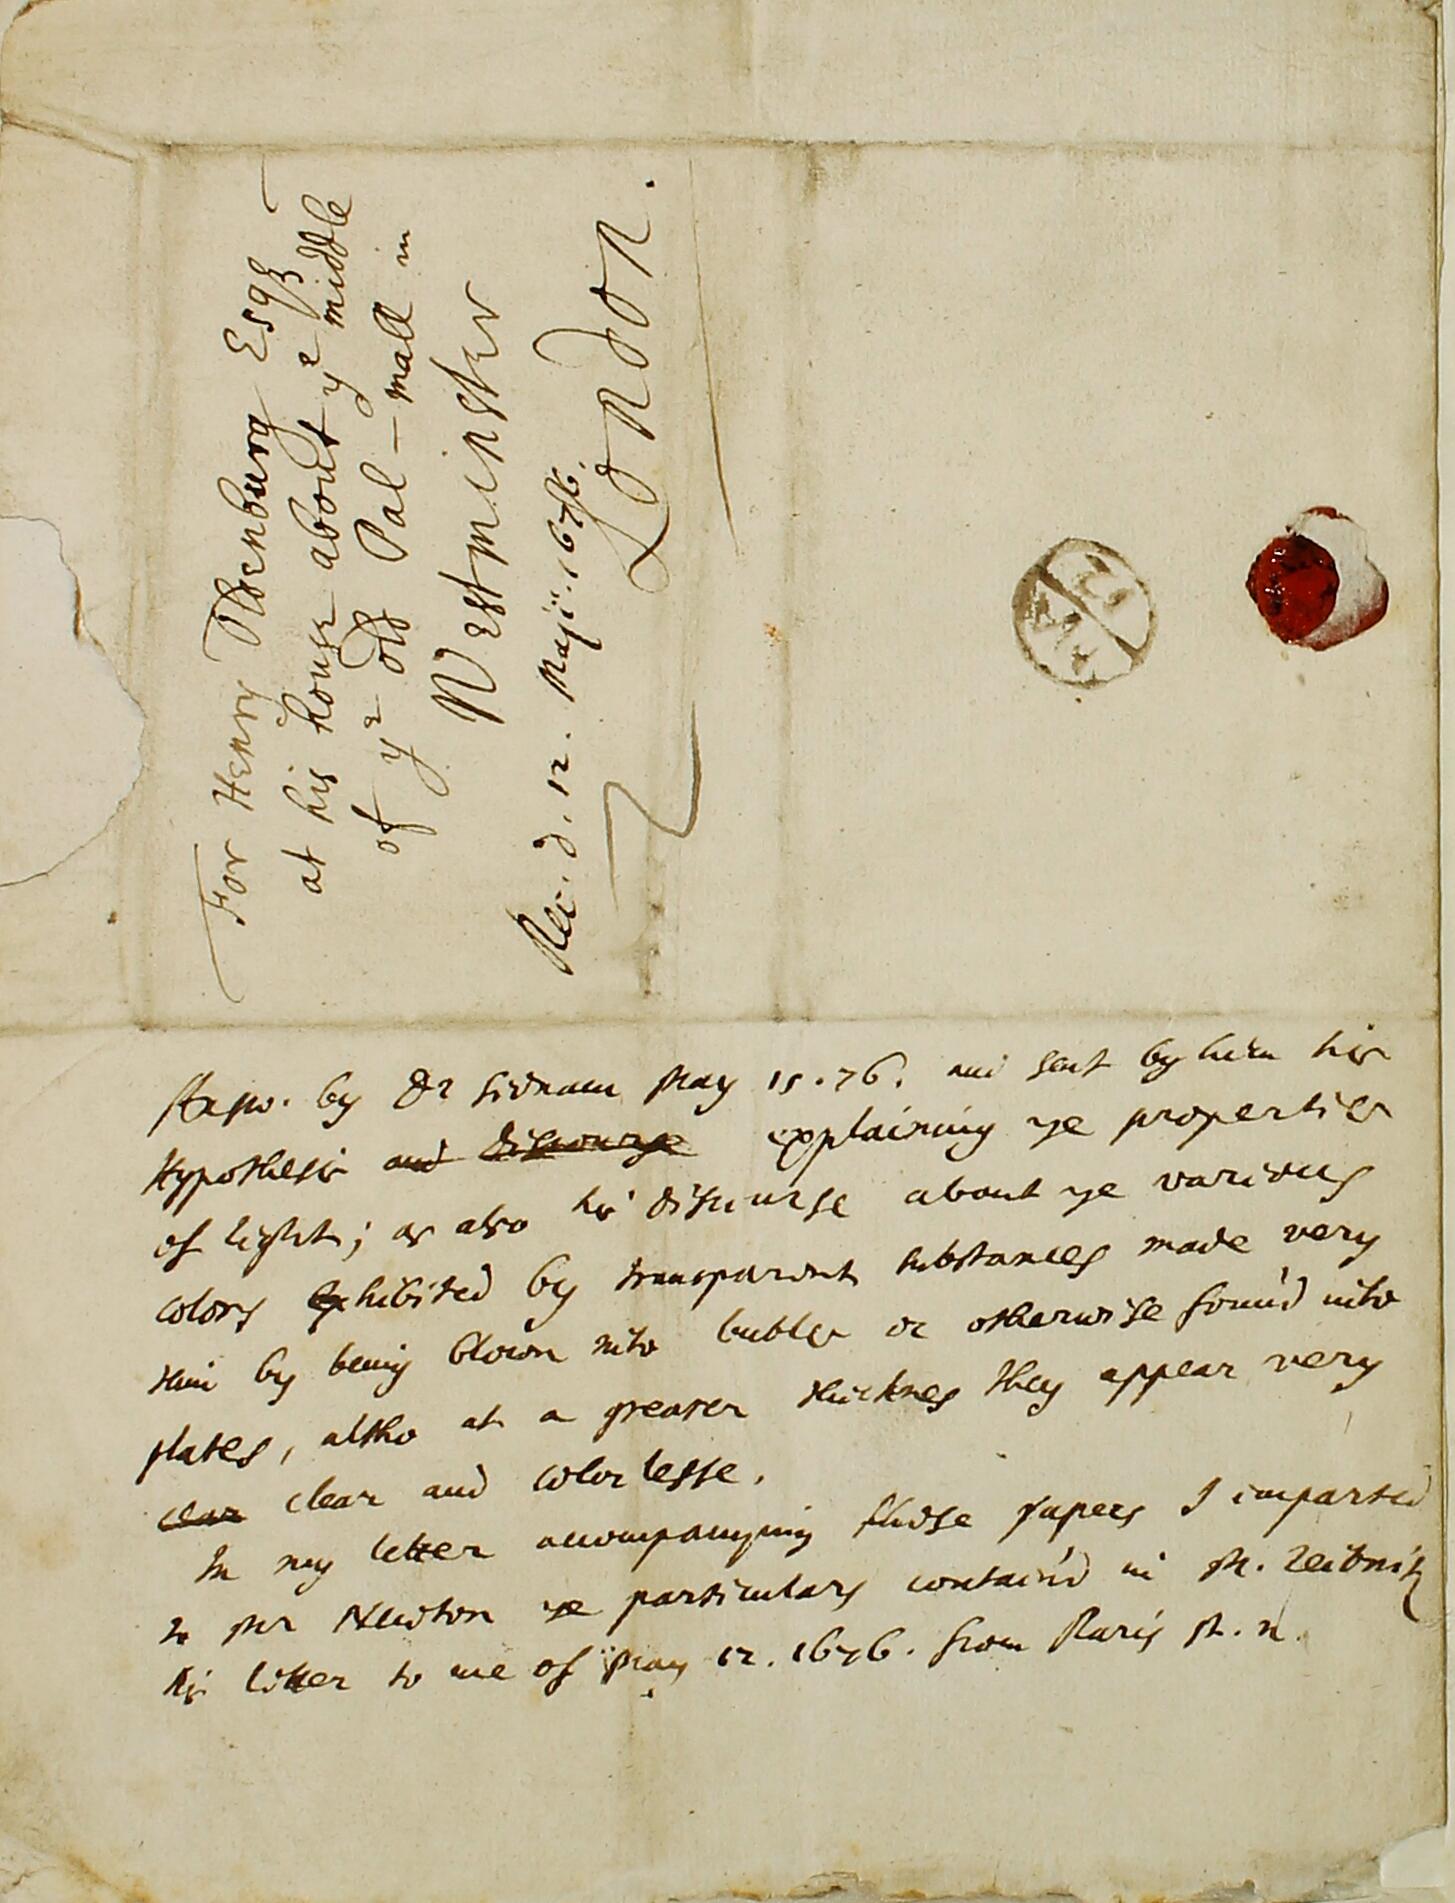 For Henry Oldenburg Esqr
at his house about ye middle
of ye old Pal-mall in
Westminster
Rec. d. 12. Maji. 1676.
London.
Resp. by Dr Sidnam May 15. 76. and sent by him his
Hypothesis and discourse explaining ye properties
of light; as also his discourse about ye various
colors exhibited by transparent substances made very
thin by being blown into bubles or otherwise form'd into
plates, altho at a greater thicknes they appear very
clear clear and colorlesse.
In my letter accompanying those papers I imparted
to Mr Newton ye particulars contain'd in M. Leibnitz
his letter to me of May 12. 1676. from Paris st. n.